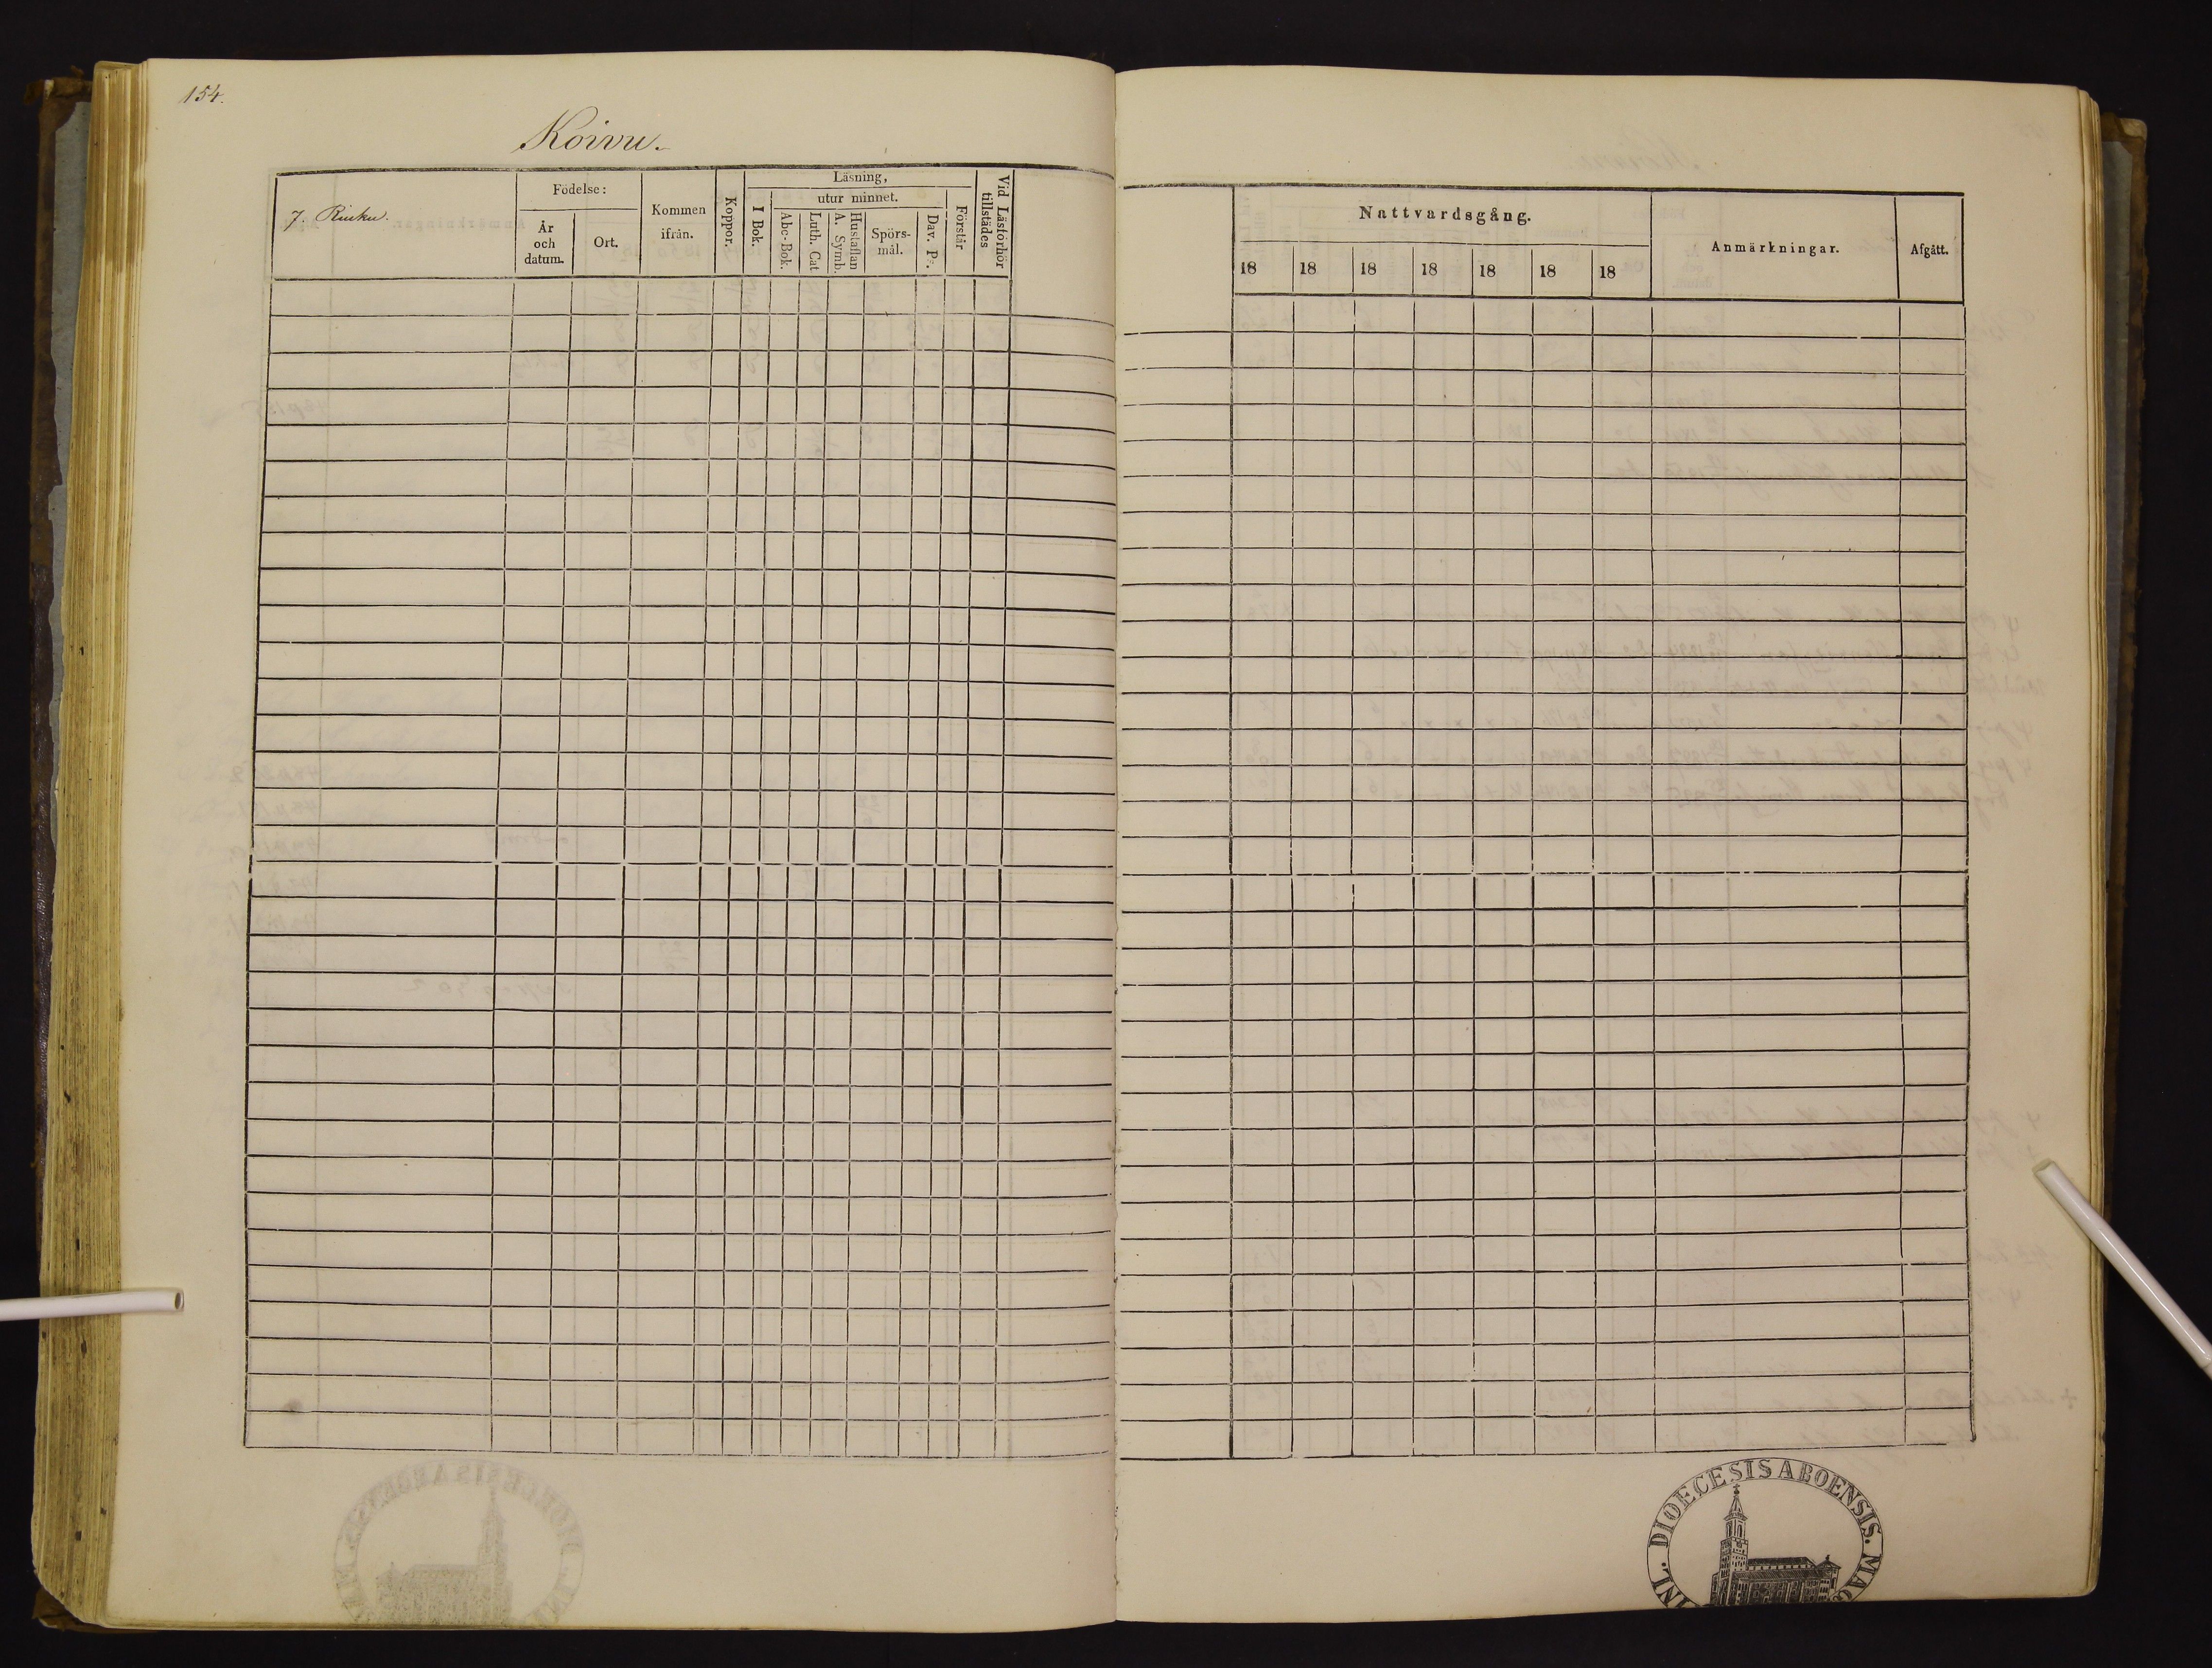 154.
Koivu.
7. Rieku.
Födelse:
År och datum.
Ort.
Kommen ifrån.
Koppor.
Läsning,
I Bok.
utur minnet.
Abc-Bok.
Luth. Cat
Hustaflan
A. Symb.
Spörs-
mål.
Dav. Ps.
Förstår
Vid Läsförhör
tillstädes
Nattvardsgång.
18 18 18 18 18 18 18
Anmärkningar.
Afgått.
DIOECESIS ABOENSIS. MAG